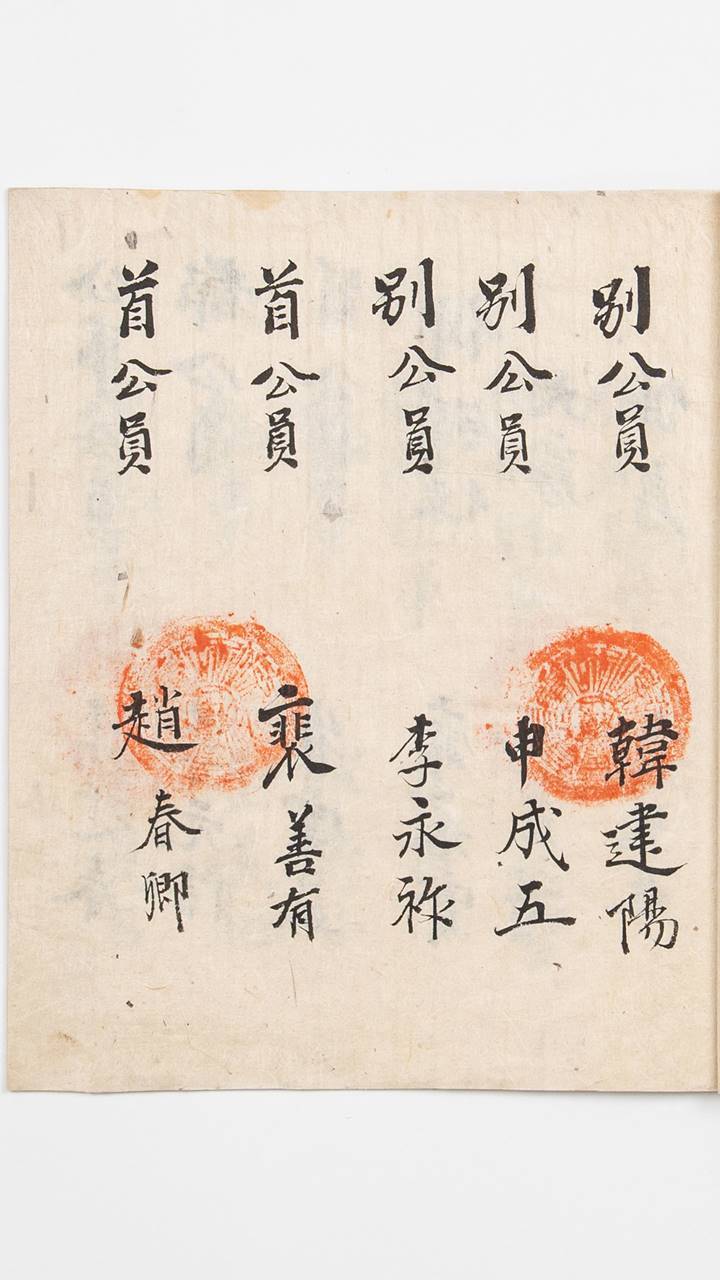 別公員 韓建陽
別公員 申成五
別公員 李永祚
首公員 裵善有
首公員 趙春卿